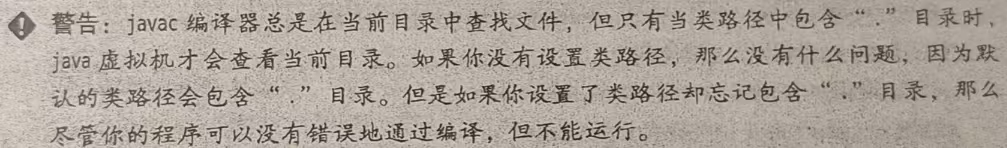 警告：javac 编译器总是在当前目录中查找文件，但只有当类路径中包含“.”目录时，
java 虚拟机才会查看当前目录。如果你没有设置类路径，那么没有什么问题，因为默
认的类路径会包含“.”目录。但是如果你设置了类路径却忘记包含“.”目录，那么
尽管你的程序可以没有错误地通过编译，但不能运行。